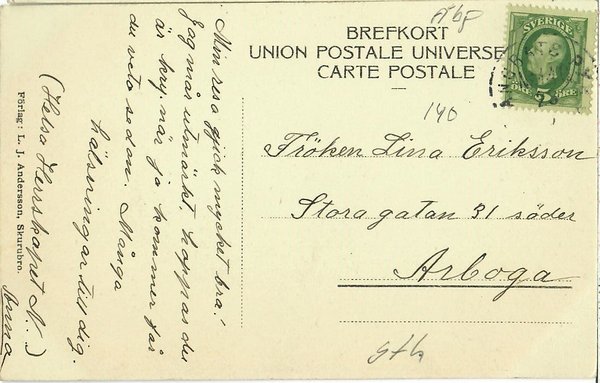 Abf
BREFKORT
UNION POSTALE UNIVERSE
CARTE POSTALE
SVERIGE
5
140
Fröken Lina Eriksson
Stora gatan 31 söder
Arboga
Sth
Min resa gick mycket bra!
Jag mår utmärkt, hoppas du
är kry. när ja kommer får
du veta sedan. Många
hälsningar till dig.
(Helsa Herrskapet N..)
Anna
Förlag: L. J. Andersson, Skurubro.